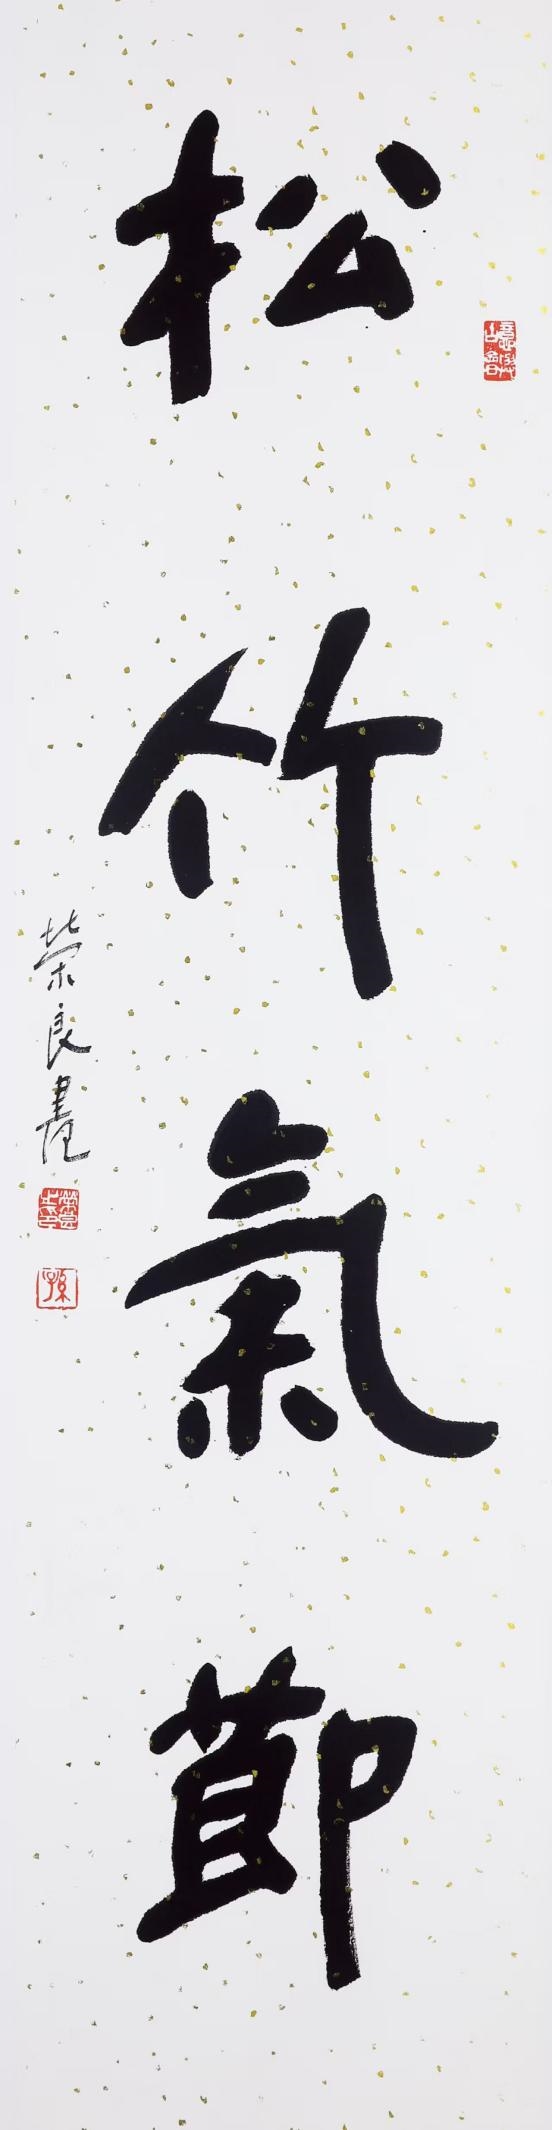 松竹氣節
榮良書